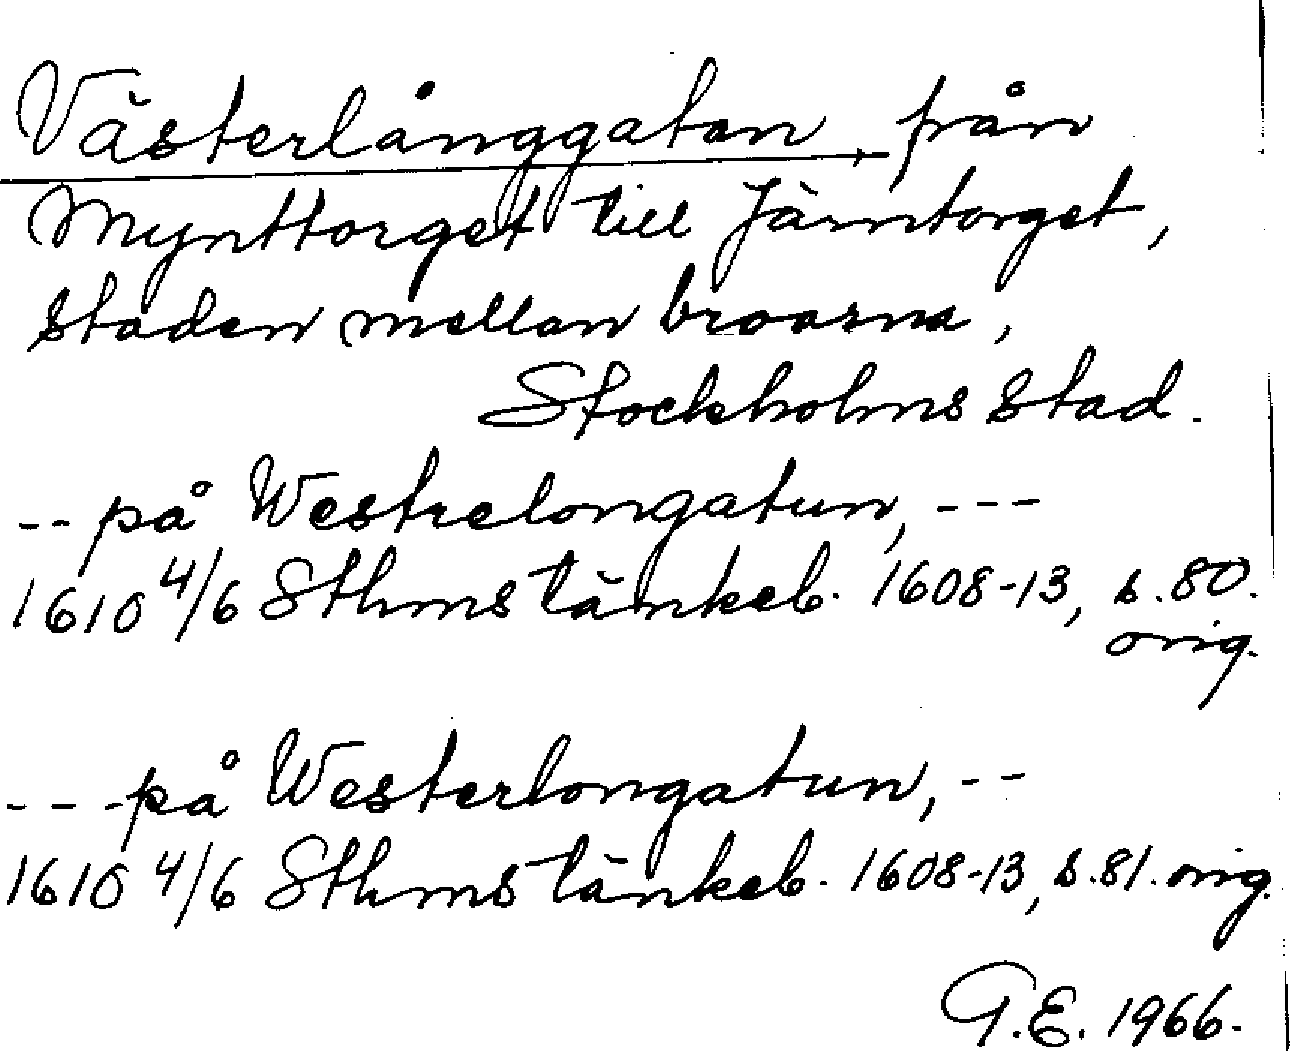 Västerlånggatan, från
Mynttorget till Järntorget,
staden mellan broarna,
Stockholms stad.
-- på Westrelongatun, ---
1610 4/6 Sthms tänkeb. 1608-13, s. 80.
orig.
--- på Westerlongatun, --
1610 4/6 Sthms tänkeb. 1608-13, s. 81. orig.
G.E. 1966.